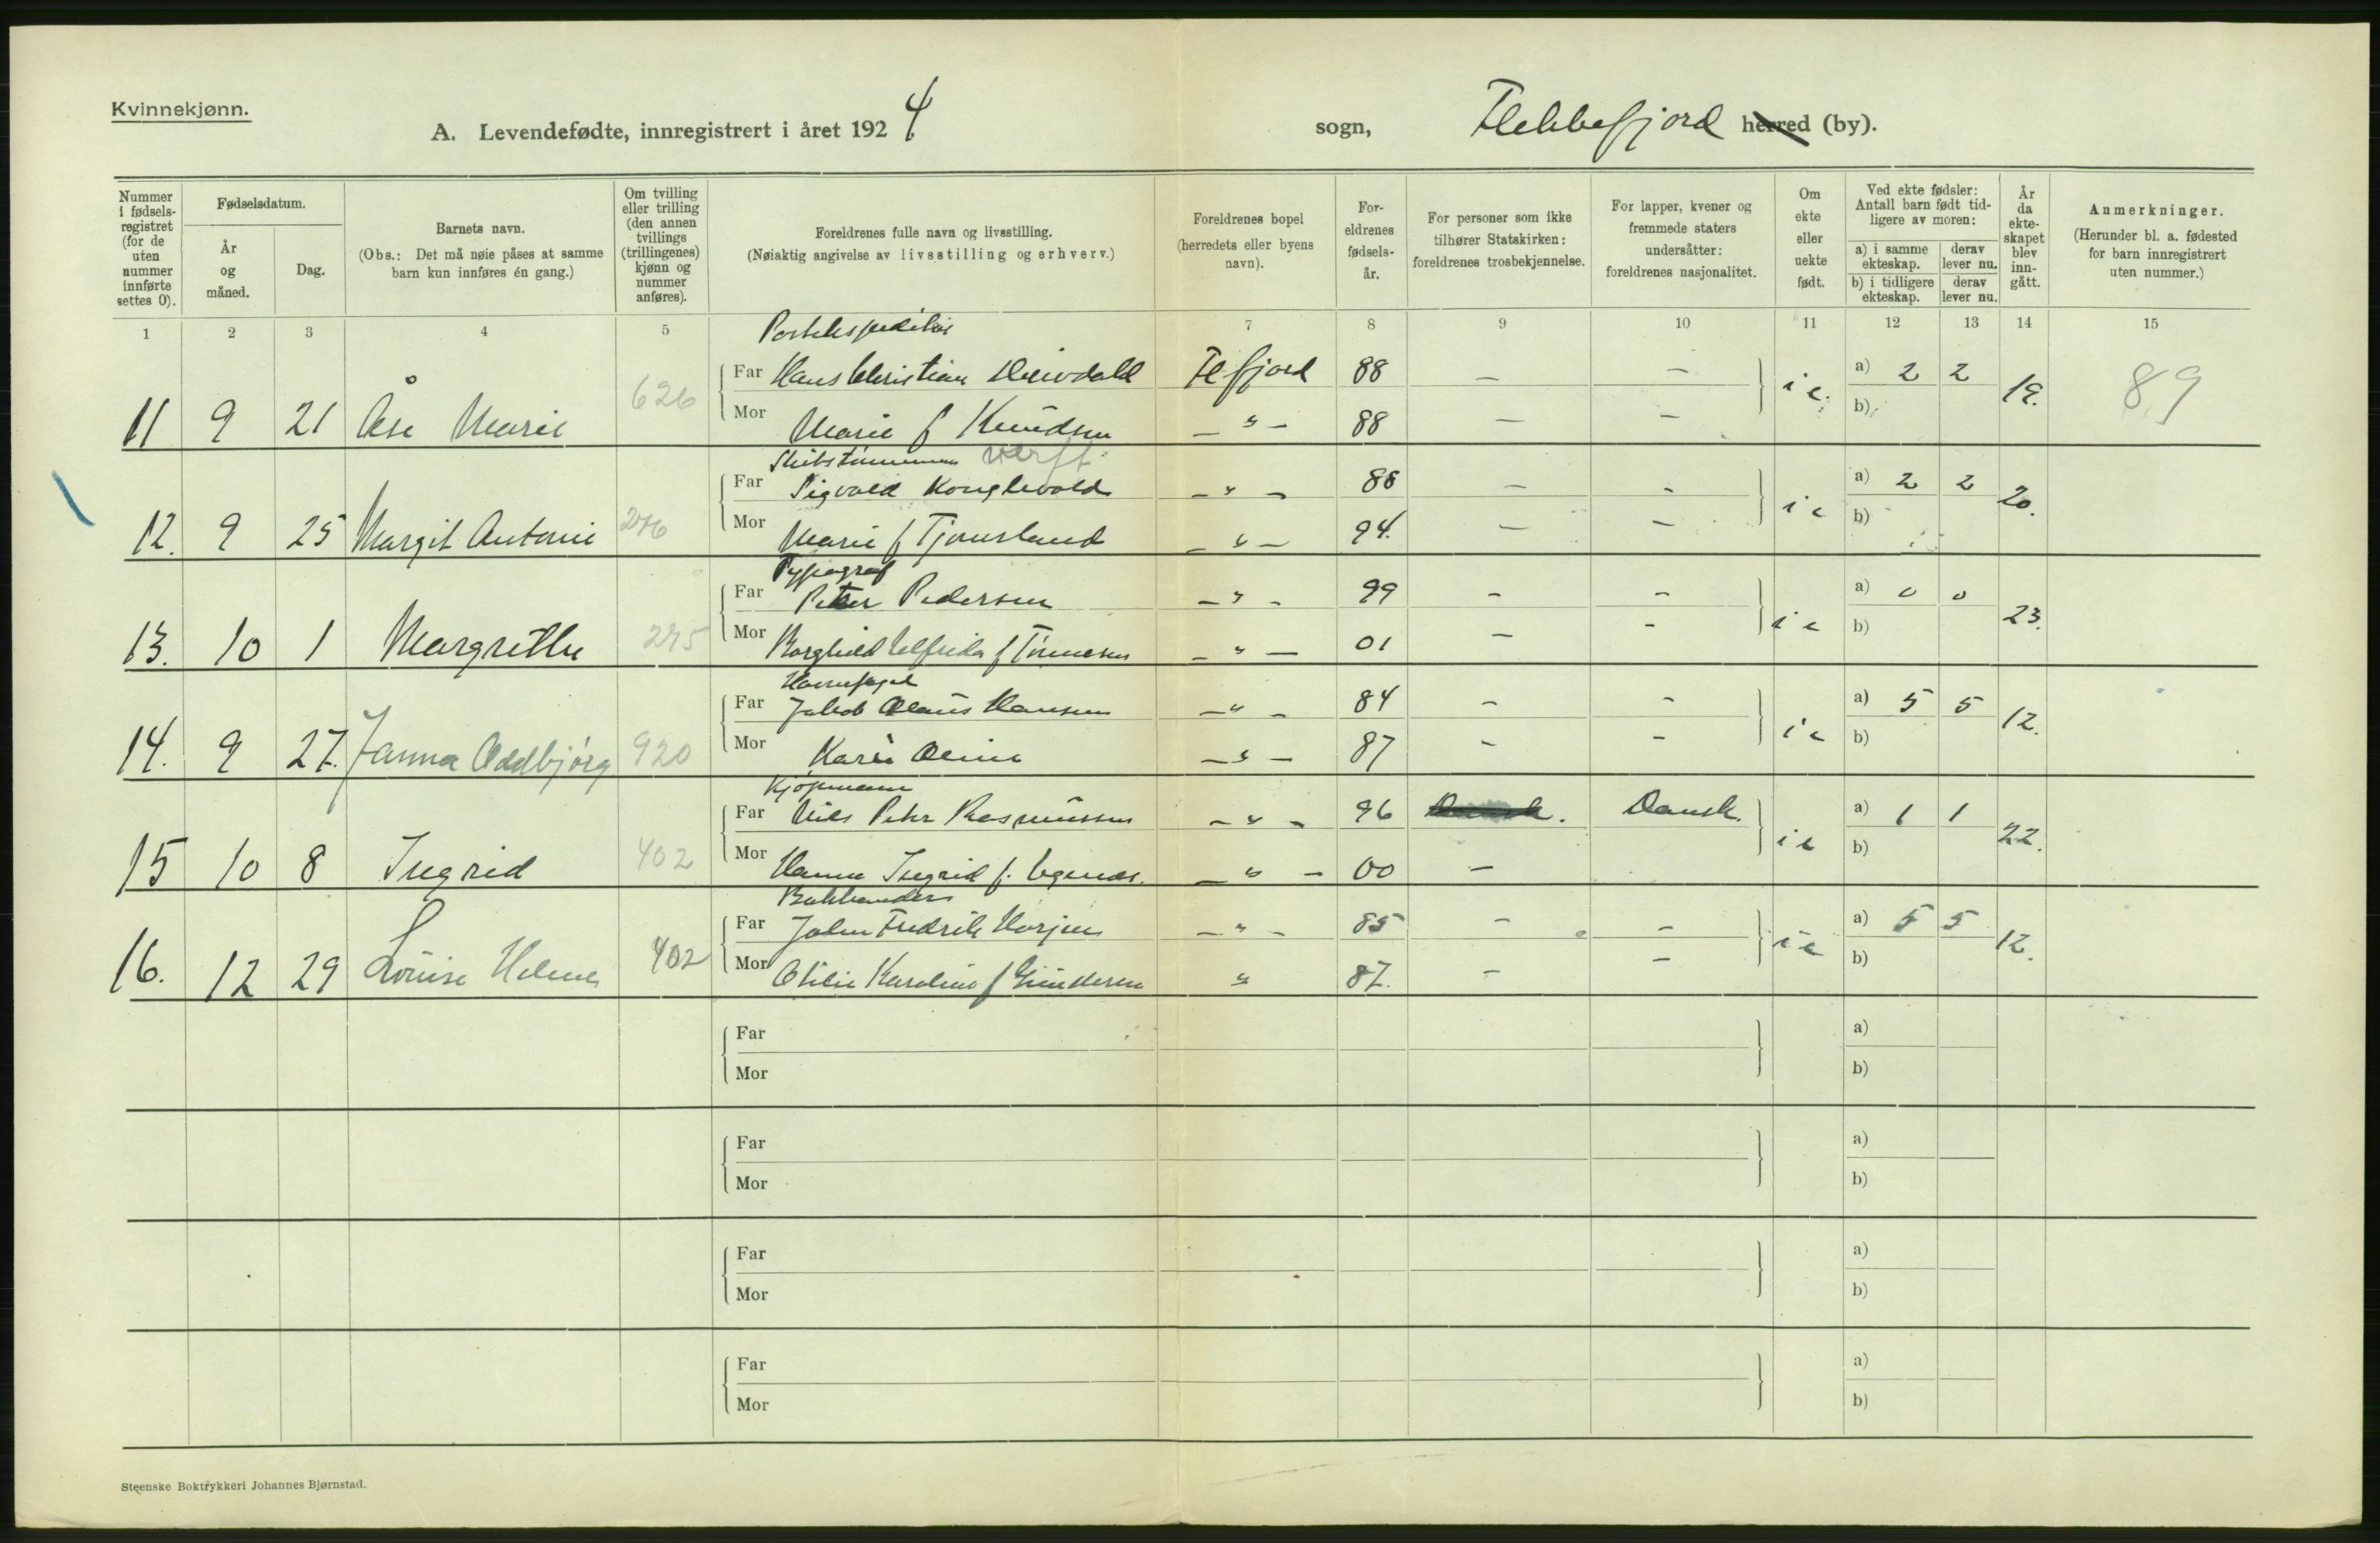 Kvinnekjønn.
A. Levendefødte, innregistrert i året 1924 sogn, Flekkefjord herred (by).
Nummer i fødsels-registret (for de uten nummer innførte settes 0).
Fødselsdatum.
År og måned.
Dag.
Barnets navn.
(Obs.: Det må nøie påses at samme barn kun innføres én gang.)
Om tvilling eller trilling (den annen tvillings (trillingenes) kjønn og nummer anføres).
Foreldrenes fulle navn og livsstilling.
(Nøiaktig angivelse av livsstilling og erhverv.)
Foreldrenes bopel (herredets eller byens navn).
For-eldrenes fødsels-år.
For personer som ikke tilhører Statskirken: foreldrenes trosbekjennelse.
For lapper, kvener og fremmede staters undersåtter: foreldrenes nasjonalitet.
Om ekte eller uekte født.
Ved ekte fødsler: Antall barn født tid-ligere av moren:
a) i samme ekteskap.
derav lever nu.
b) i tidligere ekteskap.
derav lever nu.
År da ekte-skapet blev inn-gått.
Anmerkninger.
(Herunder bl. a. fødested for barn innregistrert uten nummer.)
1 2 3 4 5 7 8 9 10 11 12 13 14 15
Postekspeditør
Far Hans Christian Flefjord 88 — — a) 2 2
11 9 21 Åse Marie 626 i e. 19. 89
Mor Marie f Knudsen — " — 88 — — b)
verft
Far Sigvald — " — 88 — - a) 2 2
12. 9 25 Margit Antonie 276 i e 20.
Mor Marie f Tjørsland — " — 94. — — b)
Typograf
Far Peter Pedersen — " - 99 - - a) 0 0
13. 10 1 Margrethe 275 i e 23.
Mor Borghild f Tønnesen — " — 01 — - b)
Havnefoged
Far Jakob Olaus Hansen — " - 84 - - a) 5 5
14. 9 27. Janna Oddbjørg 920 i e 12.
Mor Oline — " — 87 - - b)
Kjøpmann
Far Nils Peter Rasmussen — " - 96 Dansk. a) 1 1
15 10 8 Ingrid 402 i e 22.
Mor Hanna Ingrid f. — " — 00 — b)
Far John Fredrik — " - 85 - - a) 5 5
16. 12 29 Louise Helene 402 i e 12.
Mor Otilie Karoline f Gundersen " 87. - - b)
Far a)
Mor b)
Far a)
Mor b)
Far a)
Mor b)
Far a)
Mor b)
Steenske Boktrykkeri Johannes Bjørnstad.